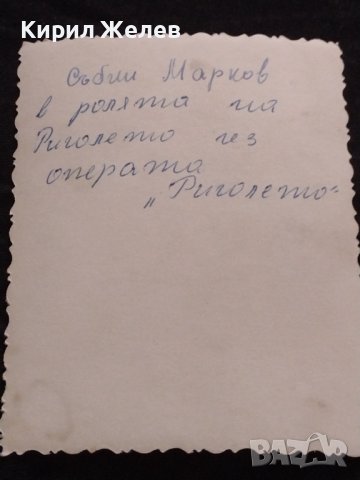 Кирил Желев
Събчи Марков
в ролята на
Риголето чез
операта
„Риголето“
BAZAR